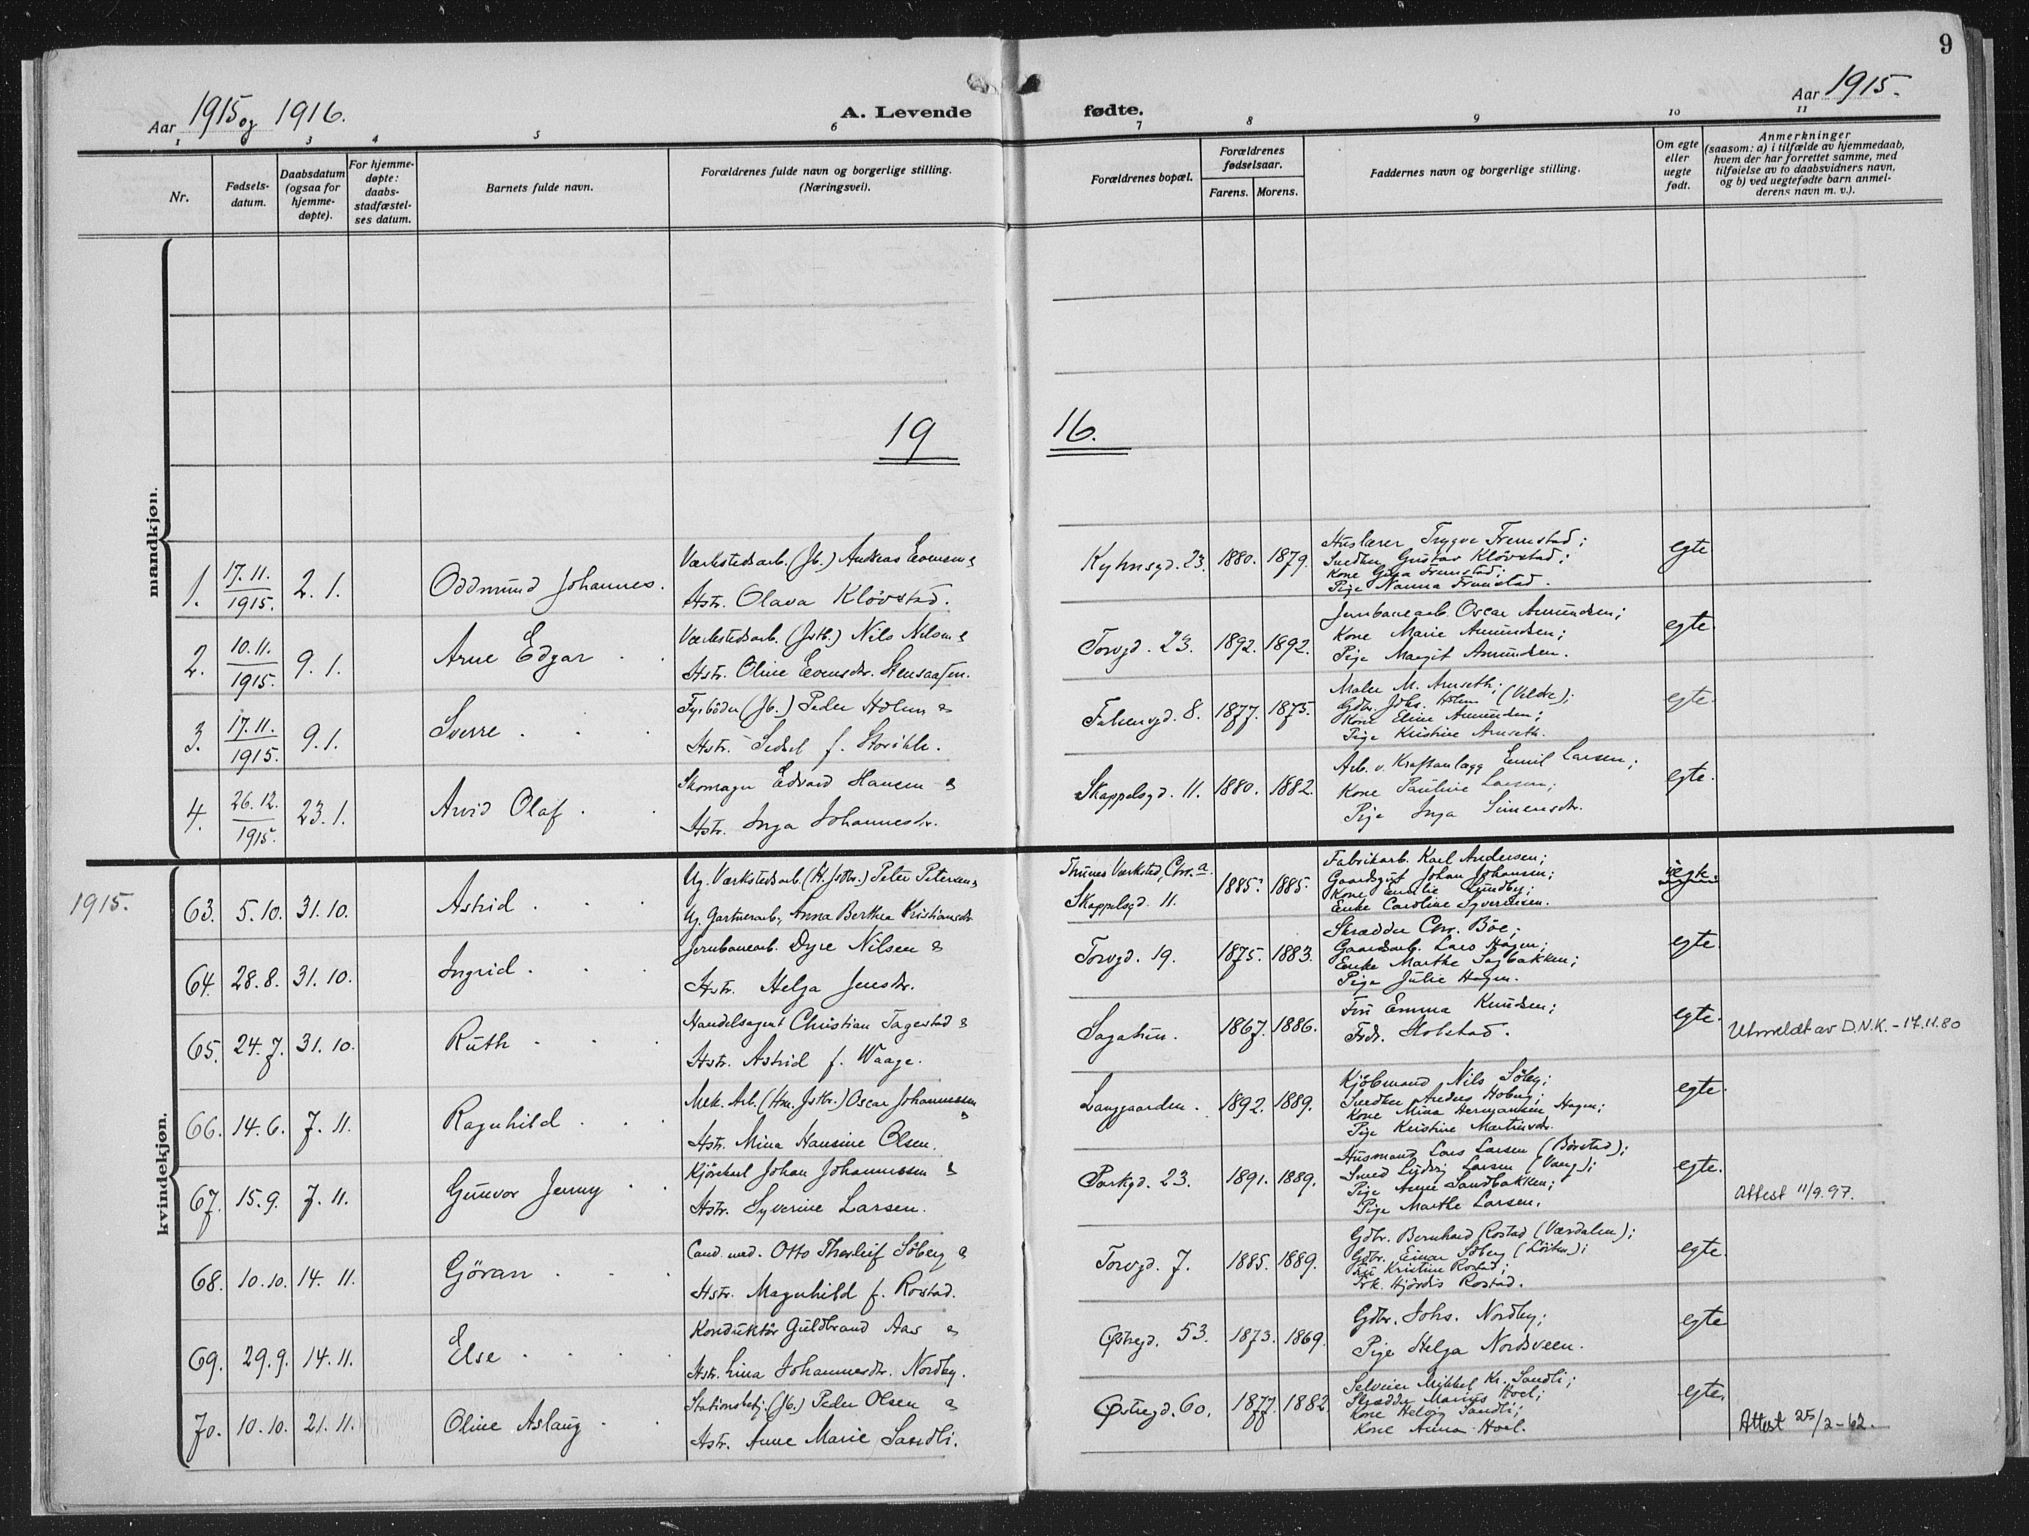 9
Aar 1915 og 1916.
A. Levende fødte.
Aar 1915.
1 2 3 4 5 6 7 8 9 10 11
Nr.
Fødsels-
datum.
Daabsdatum
(ogsaa for
hjemme-
døpte).
For hjemme-
døpte:
daabs-
stadfæstel-
ses datum.
Barnets fulde navn.
Forældrenes fulde navn og borgerlige stilling.
(Næringsvei).
Forældrenes bopæl.
Forældrenes
fødselsaar.
Farens. Morens.
Faddernes navn og borgerlige stilling.
Om egte
eller
uegte
født.
Anmerkninger
(saasom: a) i tilfælde av hjemmedaab,
hvem der har forrettet samme, med
tilføielse av to daabsvidners navn,
og b) ved uegtefødte barn anmel-
derens navn m. v.).
19 16.
mandkjøn.
1. 17.11. 1915. 2. 1. Oddmund Johannes.
Værkstedsarb. (Jb.) Andreas Evensen &
Hstr. Olava Klövstad.
Kyhnsgd. 23. 1880. 1879.
Huslærer Trygve Fremstad;
Snedker Gustav Klövstad;
Kone Gina Fremstad;
Pige Nanna Fremstad.
egte
2. 10.11. 1915. 9. 1. Arne Edgar
Værkstedsarb. (Jstb.) Nils Nilsen &
Hstr. Oline Evensdtr. Stensaasen.
Torvgd. 23. 1892. 1892.
Jernbanearb. Oscar Amundsen;
Kone Marie Amundsen;
Pige Margit Amundsen.
egte.
3. 17.11. 1915. 9. 1. Sverre
Fyrböder (Jb.) Peder Holm &
Hstr. Sedsel f. Storihle.
Falsensgd. 8. 1877. 1875.
Maler M. Amseth; (Veldre);
Gdbr. Johs. Holm
Kone Eline Amundsen;
Pige Kristine Amseth.
egte.
4. 26.12. 1915. 23. 1. Arvid Olaf
Skomager Edvard Hansen &
Hstr. Inga Johannesdtr.
Skappelsgd. 11. 1880. 1882.
Arb. v. Kraftanlægg Emil Larsen;
Kone Pauline Larsen;
Pige Inga Simensdtr.
egte.
kvindekjøn.
1915.
63. 5. 10. 31. 10. Astrid
Ug. Værkstedsarb. (H. Jstbr.) Peter Petersen &
Ug. Gartnerarb. Anna Berthea Kristiansdtr.
Thunes Værksted, Chr.a
Skappelsgd. 11. 1885. 1885.
Fabrikarb. Karl Andersen;
Gaardsgut Johan Johansen;
Kone Emilie Lundby;
Enke Caroline Syversen.
64. 28. 8. 31. 10. Ingrid
Jernbanearb. Dyre Nilsen &
Hstr. Helga Jensdtr.
Torvgd. 19. 1875. 1883.
Skrædder Chr. Böe;
Gaardsarb. Lars Hagen;
Enke Marthe Sagbakken;
Pige Julie Hagen.
egte.
65. 24. 7. 31. 10. Ruth
Handelsagent Christian Tagestad &
Hstr. Astrid f. Waage.
Sagatun. 1867. 1886.
Fru Emma Knudsen;
Frk. Skolstad.
egte.
Utmeldt av D.N.K. - 17.11.80
66. 14. 6. 7. 11. Ragnhild
Mek. Arb. (Hm. Jstbr.) Oscar Johannessen &
Hstr. Mina Hansine Olsen.
Langgaarden. 1892. 1889.
Kjöbmand Nils Söby;
Snedker Anders Hoberg;
Kone Mina Hermansen Hagen;
Pige Kristine Martinsdtr.
egte.
67. 15. 9. 7. 11. Gunvor Jenny
Kjörekarl Johan Johannessen &
Hstr. Syverine Larsen.
Parkgd. 23. 1891. 1889.
Husmand Lars Larsen (Börstad);
Smed Ludvig Larsen (Vang);
Pige Anne Sandbakken;
Pige Marthe Larsen.
egte.
Attest 11/9.97.
68. 10. 10. 14. 11. Göran
Cand. med. Otto Thorleif Söberg &
Hstr. Magnhild f. Rostad.
Torvgd. 7. 1885. 1889.
Gdbr. Bernhard Rostad (Værdalen);
Gdbr. Einar Söberg (Löiten);
Fru Kristine Rostad;
Frk. Hjördis Rostad.
egte.
69. 29. 9. 14. 11. Else
Konduktör Guldbrand Aas &
Hstr. Lina Johannesdtr. Nordby.
Østregd. 53. 1873. 1869.
Gdbr. Johs. Nordby;
Pige Helga Nordsveen.
egte
70. 10. 10. 21. 11. Oline Aslaug
Stationsbetj. (Jb.) Peder Olsen &
Hstr. Anne Marie Sandli.
Østregd. 60. 1877. 1882.
Selveier Mikkel Kr. Sandli;
Skrædder Marius Hoel;
Kone Helga Sandli;
Kone Anna Hoel.
egte.
Attest 25/2-62.